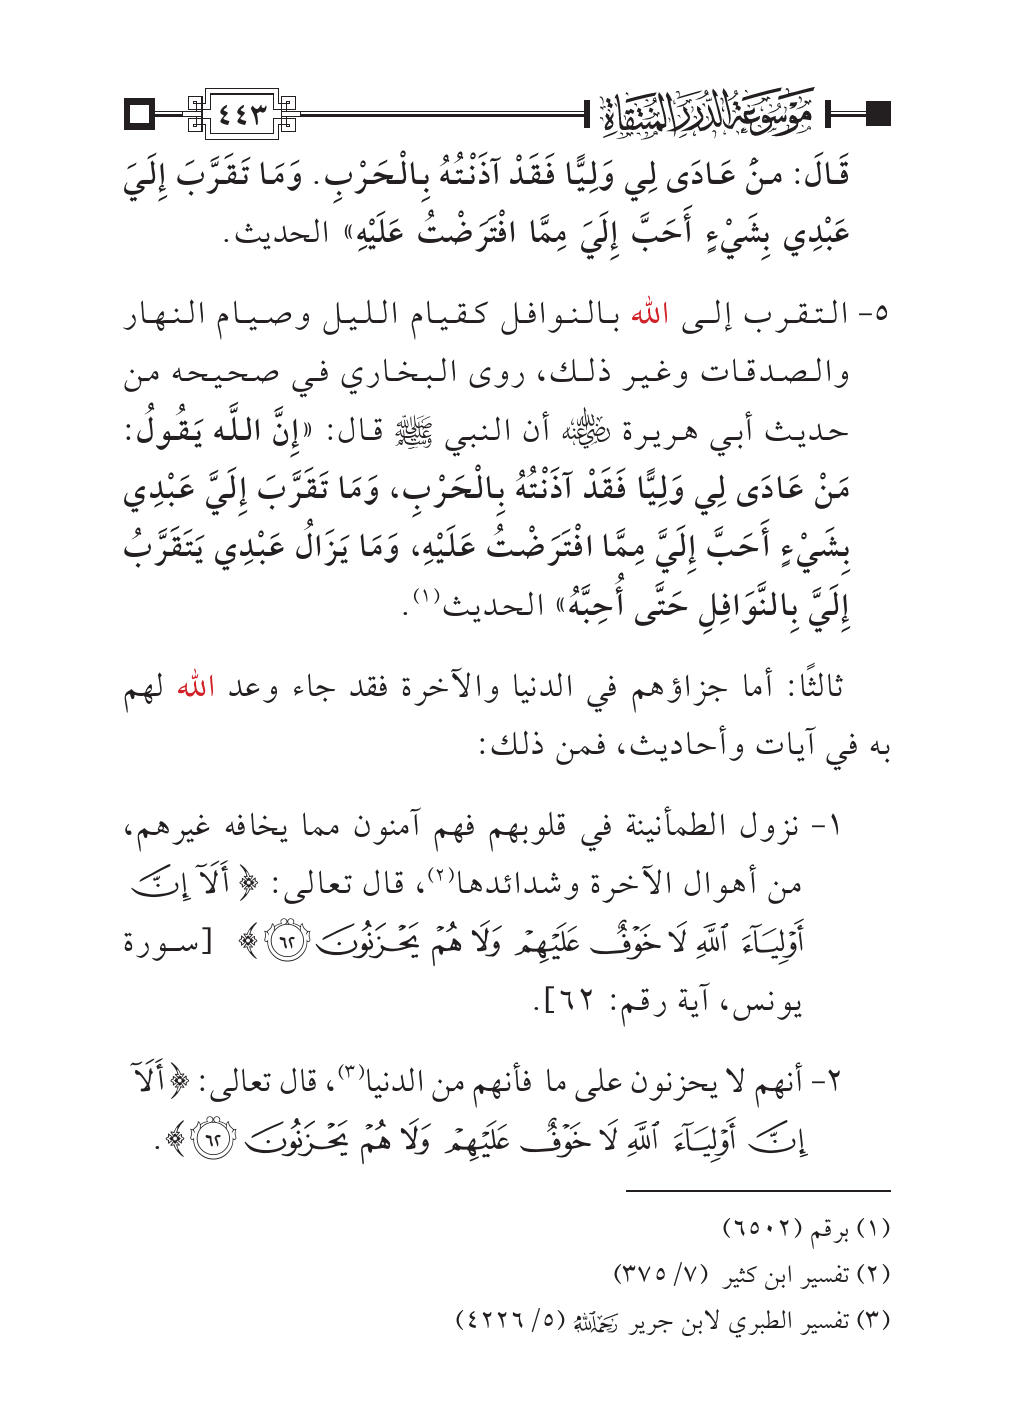 موسوعة الدرر المنتقاة ٤٤٣
قَالَ: منْ عَادَى لِي وَلِيًّا فَقَدْ آذَنْتُهُ بِالْحَرْبِ. وَمَا تَقَرَّبَ إِلَيَ
عَبْدِي بِشَيْءٍ أَحَبَّ إِلَيَ مِمَّا افْتَرَضْتُ عَلَيْهِ» الحديث.
٥- التقرب إلى الله بالنوافل كقيام الليل وصيام النهار
والصدقات وغير ذلك، روى البخاري في صحيحه من
حديث أبي هريرة ﵁ أن النبي ﷺ قال: «إِنَّ اللَّه يَقُولُ:
مَنْ عَادَى لِي وَلِيًّا فَقَدْ آذَنْتُهُ بِالْحَرْبِ، وَمَا تَقَرَّبَ إِلَيَّ عَبْدِي
بِشَيْءٍ أَحَبَّ إِلَيَّ مِمَّا افْتَرَضْتُ عَلَيْهِ، وَمَا يَزَالُ عَبْدِي يَتَقَرَّبُ
إِلَيَّ بِالنَّوَافِلِ حَتَّى أُحِبَّهُ» الحديث(١).
ثالثًا: أما جزاؤهم في الدنيا والآخرة فقد جاء وعد الله لهم
به في آيات وأحاديث، فمن ذلك:
١- نزول الطمأنينة في قلوبهم فهم آمنون مما يخافه غيرهم،
من أهوال الآخرة وشدائدها(٢)، قال تعالى: ﴿أَلَآ إِنَّ
أَوْلِيَآءَ ٱللَّهِ لَا خَوْفٌ عَلَيْهِمْ وَلَا هُمْ يَحْزَنُونَ ٦٢﴾ [سورة
يونس، آية رقم: ٦٢].
٢- أنهم لا يحزنون على ما فأنهم من الدنيا(٣)، قال تعالى: ﴿أَلَآ
إِنَّ أَوْلِيَآءَ ٱللَّهِ لَا خَوْفٌ عَلَيْهِمْ وَلَا هُمْ يَحْزَنُونَ ٦٢﴾.
(١) برقم (٦٥٠٢)
(٢) تفسير ابن كثير (٧/ ٣٧٥)
(٣) تفسير الطبري لابن جرير ﵀ (٥/ ٤٢٢٦)